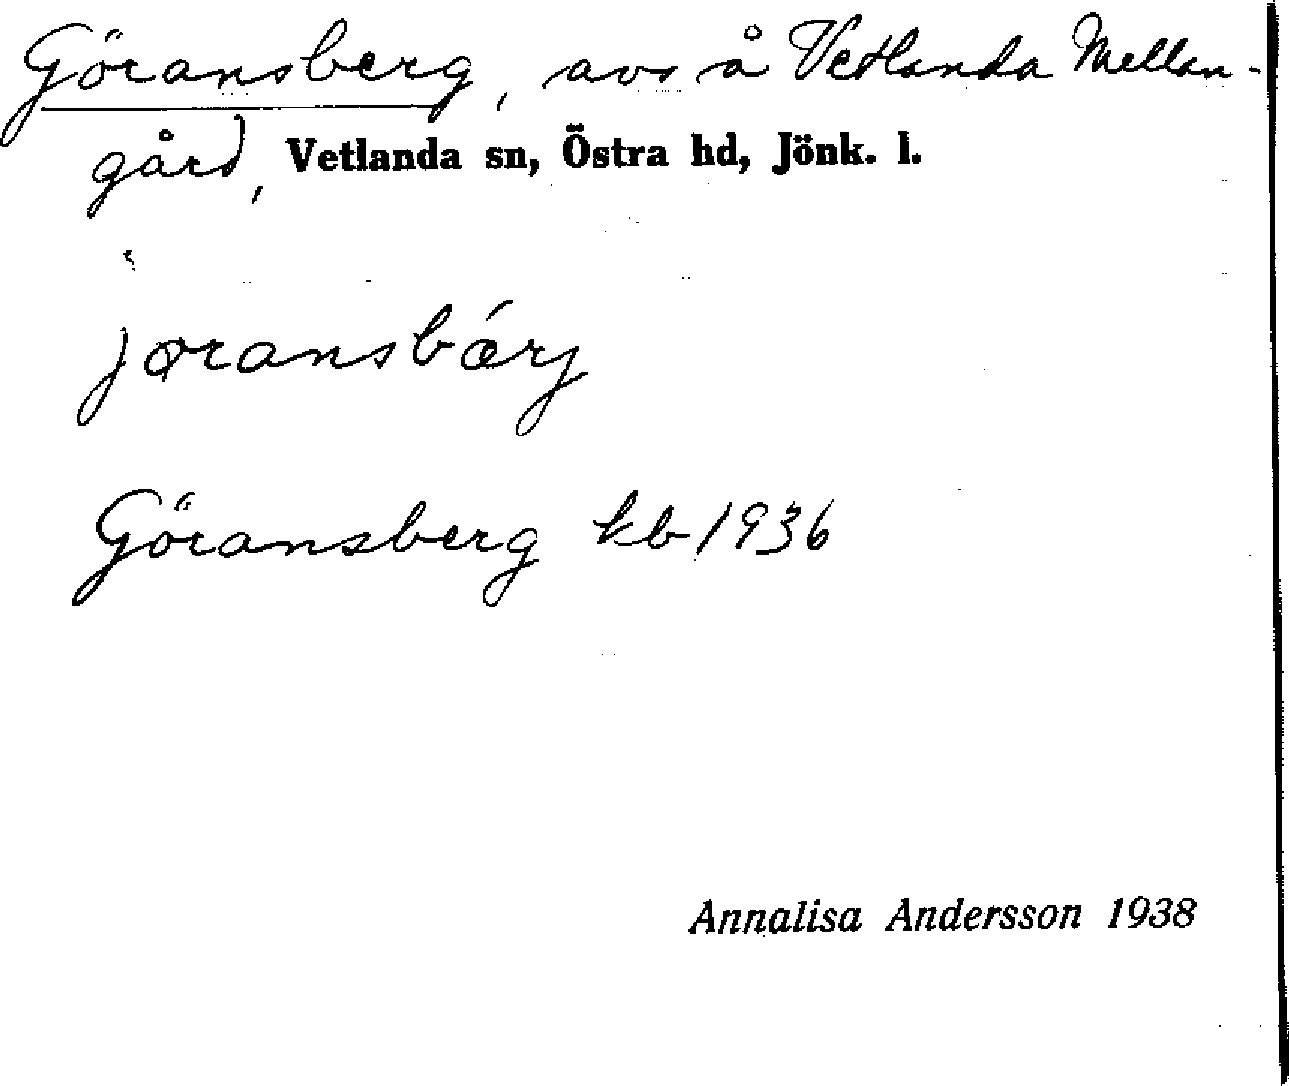 Göransberg, avs å Vetlanda Mellan-
gård, Vetlanda sn, Östra hd, Jönk. l.
jøransbǽrj
Göransberg kb 1936
Annalisa Andersson 1938